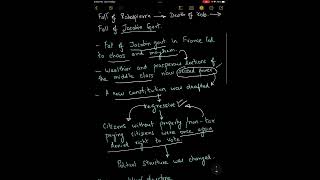 Fall of Robespierre → Death of Rob.
Fall of Jacobin Govt.
- Fal of Jacobin govt in France led
to chaos and mayhem.
- Wealthier and prosperous sections of
the middle class now seized power
- A new constitution was drafted
Regressive
Citizens without property / non-tax
paying citizens were once again
denied right to vote.
Political structure was changed.